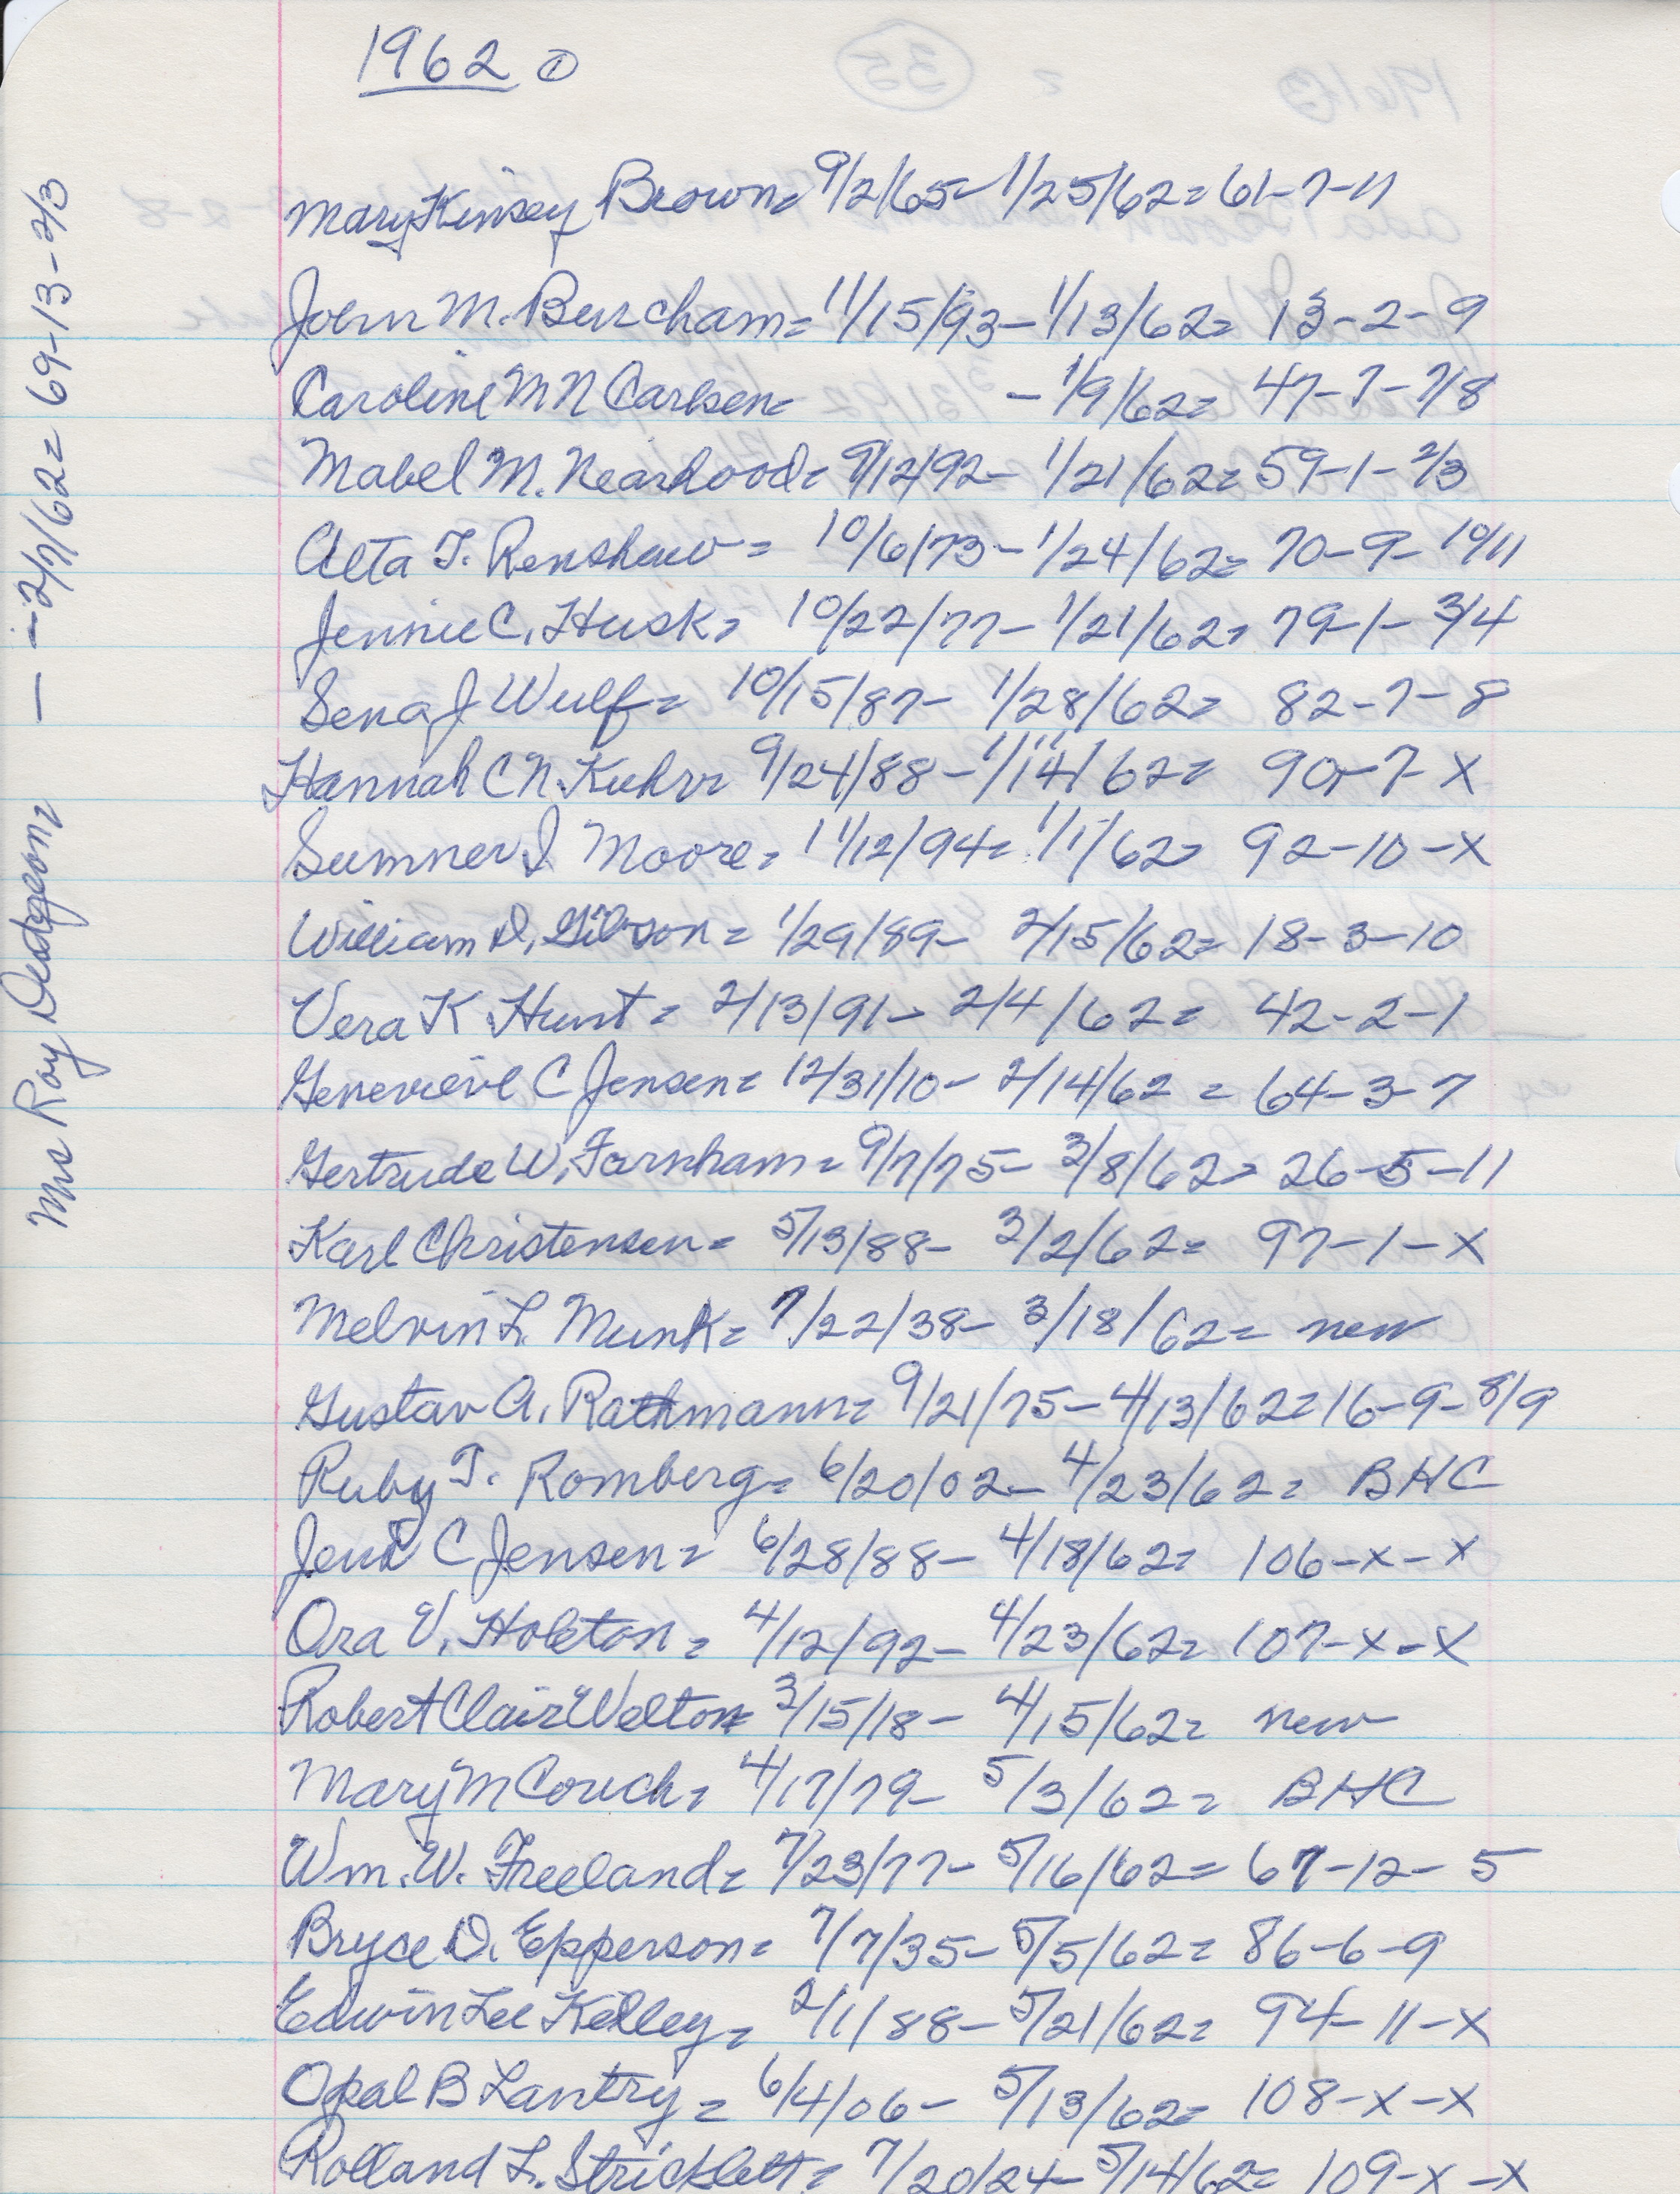 1962 ①
Mary Kinsey Brown= 9/2/65- 1/25/62= 61-7-11
John M. Burcham= 11/15/93- 1/13/62= 13-2-9
Caroline M N Carlsen= - 1/9/62= 47-7-7/8
Mabel M. Nearhood= 9/12/92- 1/21/62= 59-1-2/3
Alta T. Renshaw= 10/6/73- 1/24/62= 70-9-10/11
Jennie C. Husk= 10/22/77- 1/21/62= 79-1-3/4
Sena J Wulf= 10/15/87- 1/28/62= 82-7-8
Hannah C N. Kuhr= 9/24/88- 1/14/62= 90-7-X
Sumner I Moore= 11/12/94= 1/1/62= 92-10-X
William D. Gibson= 1/29/89- 2/15/62= 18-3-10
Vera K Hunt= 2/13/91- 2/4/62= 42-2-1
Genevieve C Jensen= 12/31/10- 2/14/62= 64-3-7
Gertrude W. Farnham= 9/7/75- 3/8/62= 26-5-11
Karl Christensen= 5/13/88- 3/2/62= 97-1-X
Melvin L. Munk= 7/22/38- 3/18/62= new
Gustav A. Rathmann= 9/21/75- 4/13/62= 16-9-8/9
Ruby T. Romberg= 6/20/02- 4/23/62= BHC
Jens C Jensen= 6/28/88- 4/18/62= 106-X-X
Ora V. Holeton= 4/12/92- 4/23/62= 107-X-X
Robert Clair Welton= 3/15/18- 4/15/62= new
Mary M Couch= 4/17/79- 5/3/62= BHC
Wm. W. Freeland= 7/23/77- 5/16/62= 67-12-5
Bryce D. Epperson= 7/7/35- 5/5/62= 86-6-9
Edwin Lee Kelley= 2/1/88- 5/21/62= 94-11-X
Opal B Lantry= 6/4/06- 5/13/62= 108-X-X
Rolland L. Stricklett= 7/20/24- 5/14/62= 109-X-X
Mrs Roy Dudgeon= - - 2/7/62= 69-13-2/3